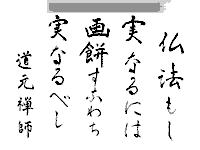 仏法もし
実なるには
画餅すなわち
実なるべし
道元禅師